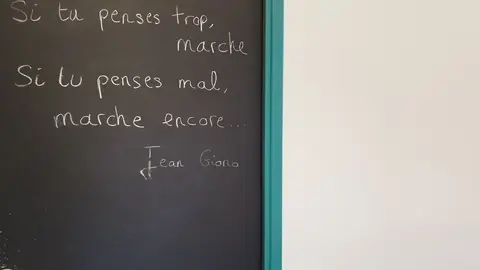 Si tu penses trop,
marche
Si tu penses mal,
marche encore...
Jean Giono